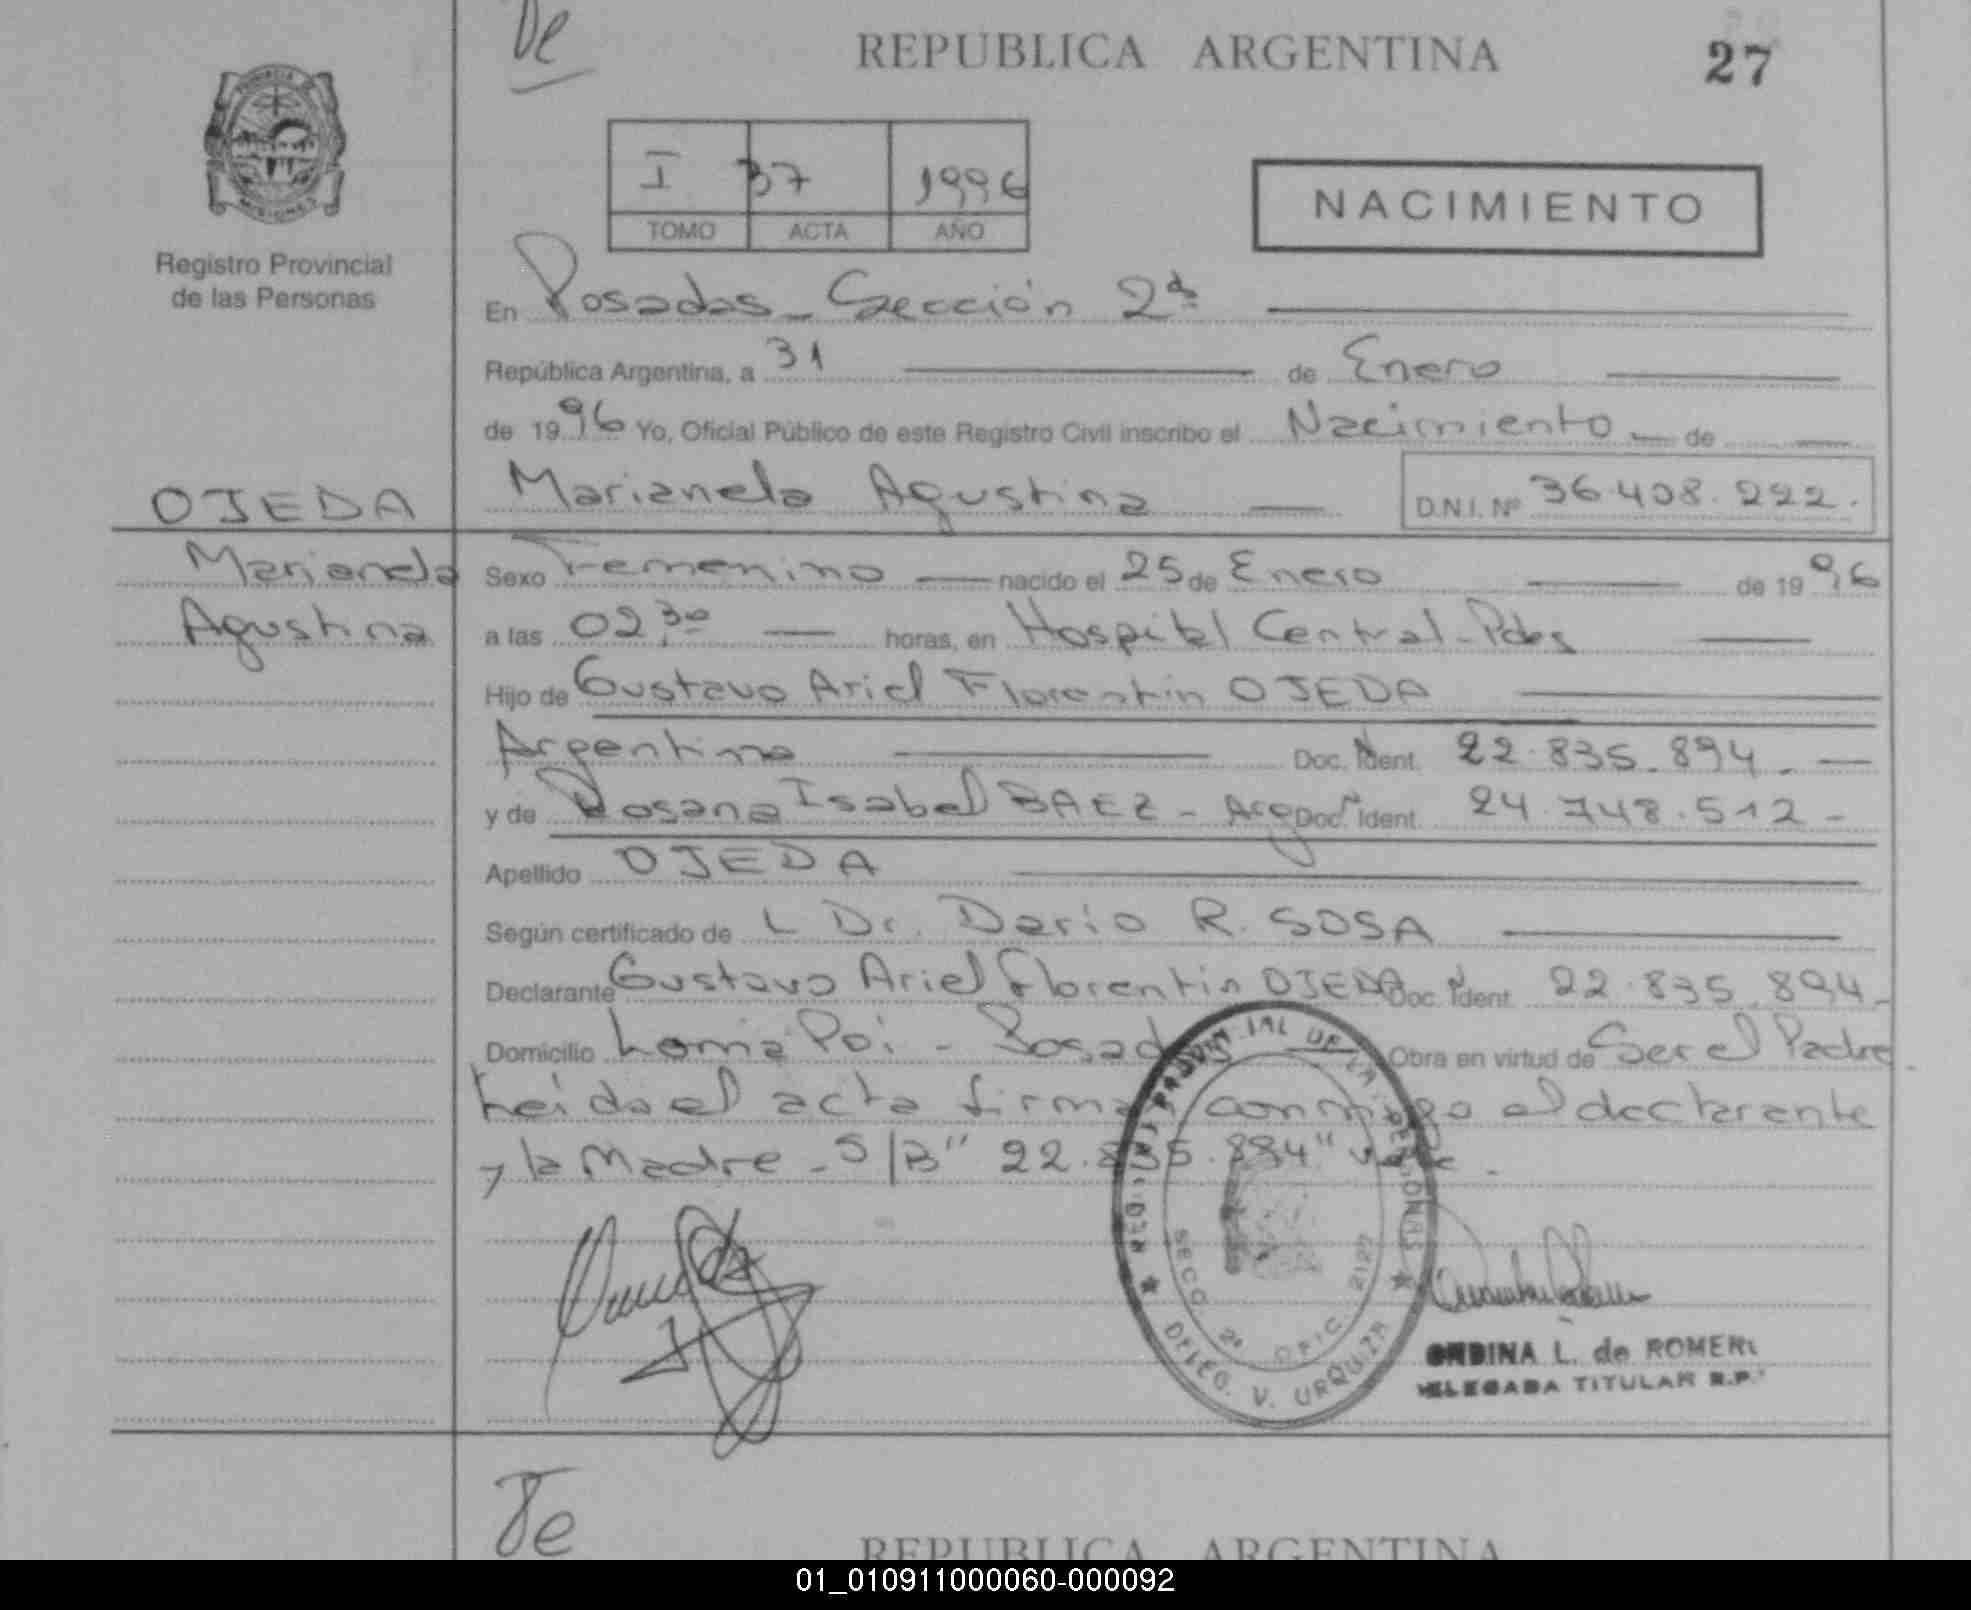 De
REPUBLICA ARGENTINA
27
I 37 1996
TOMO ACTA AÑO
NACIMIENTO
PROVINCIA
MISIONES
Registro Provincial
de las Personas
En Posadas - Sección 2da
República Argentina, a 31 de Enero
de 1996 Yo, Oficial Público de este Registro Civil inscribo el Nacimiento de
OJEDA
Marianela Agustina D.N.I. Nº 36.408.222.
Marianela
Agustina
Sexo Femenino nacido el 25 de Enero de 1996
a las 02,30 horas, en Hospital Central - Pdas
Hijo de Gustavo Ariel Florentin OJEDA
Argentino Doc. Ident. 22.835.894. -
y de Rosana Isabel BAEZ - Arg Doc. Ident. 24.748.512 -
Apellido OJEDA
Según certificado de L Dr. Dario R. SOSA
Declarante Gustavo Ariel Florentin OJEDA Doc. Ident. 22.835.894 -
Domicilio Loma Poi - Posadas Obra en virtud de Ser el Padre
Leida el acta firman conmigo el declarante
y la Madre - S/B "22.835.894" vale.
REG. PROVINCIAL DE LAS PERSONAS
SECC. 2a OFIC. 2127
DELEG. V. URQUIZA
ONDINA L. de ROMERO
DELEGADA TITULAR R.P.
De
REPUBLICA ARGENTINA
01_010911000060-000092